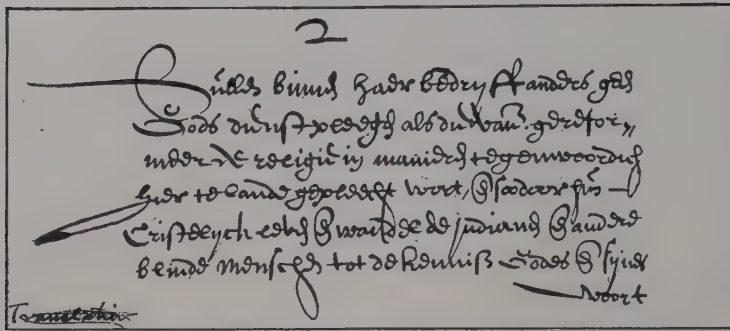 2
Sullen binnen haer bedryff anders geen
Gods dienst pleegen als die van gerefor„
meerde religie in manieren tegenwoordich
hier te lande gepleecht wort, en soo door hun
Cristelyck leven en wandel de Indianen en andere
blinde Menschen tot de kenniss Godes en synes
woort